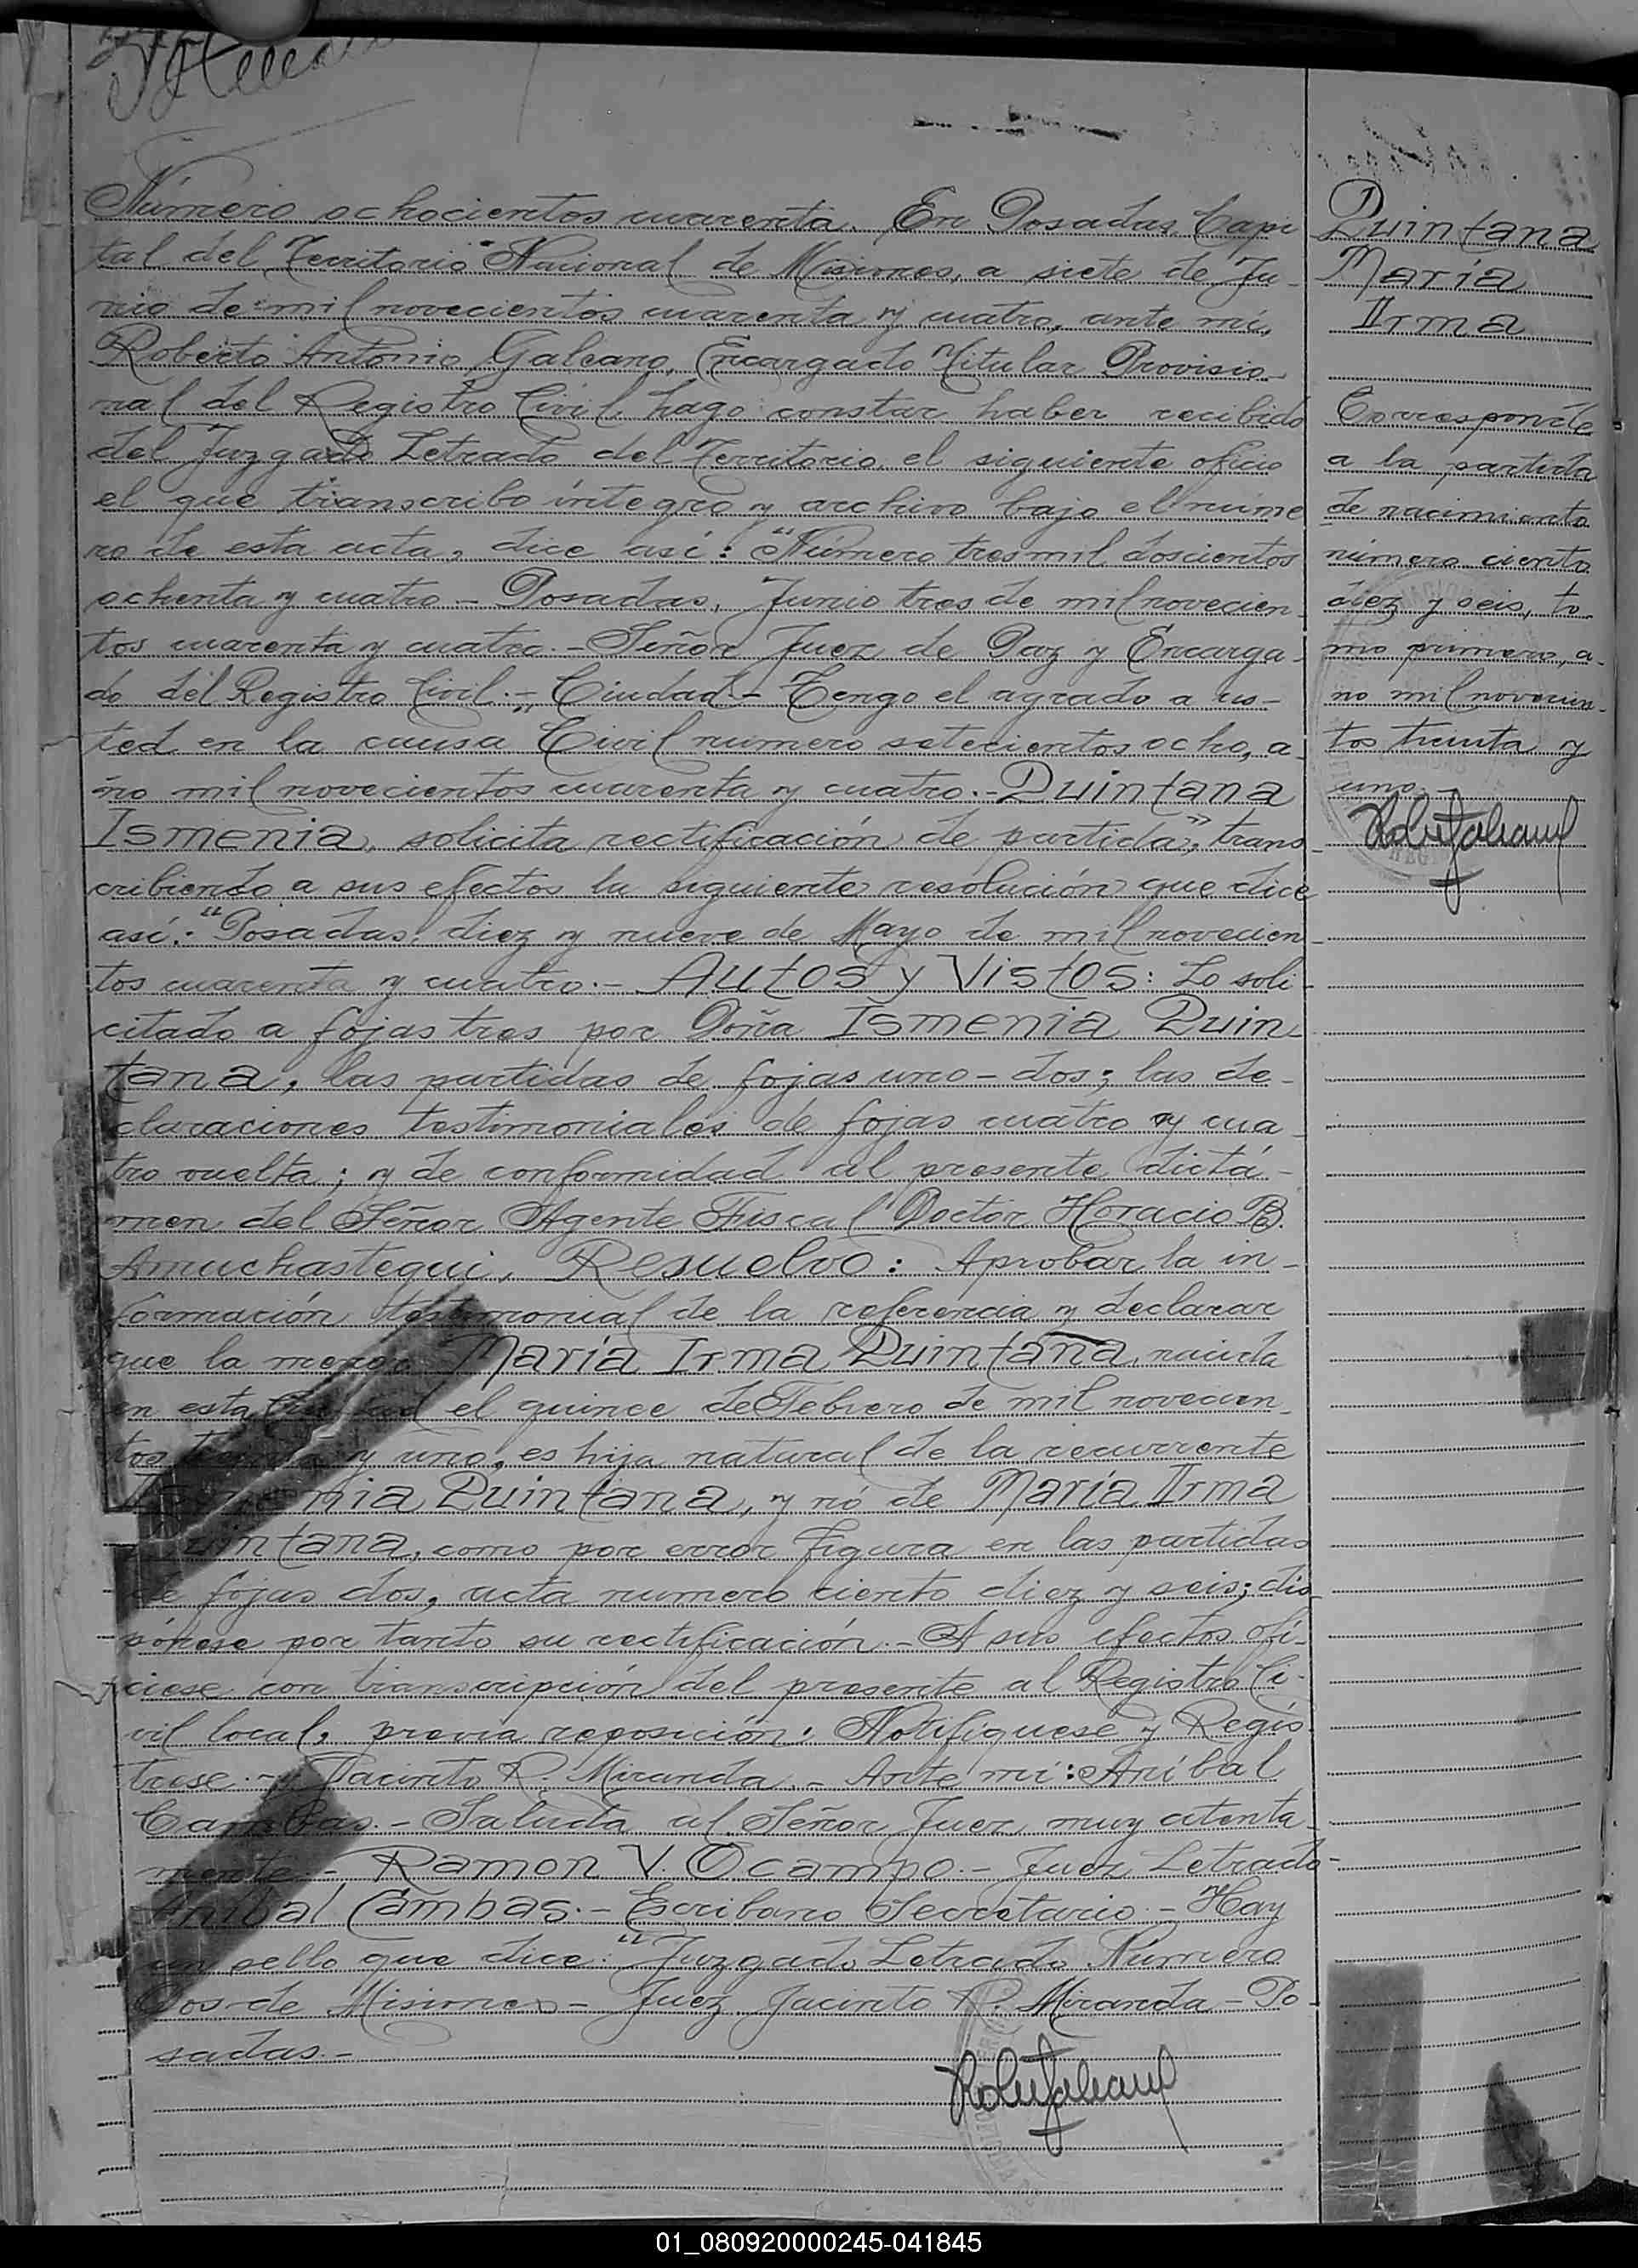 Número ochocientos cuarenta. En Posadas, Capi
tal del Territorio Nacional de Misiones, a siete de Ju-
nio de mil novecientos cuarenta y cuatro, ante mí,
Roberto Antonio Galeano, Encargado Titular Provisio-
nal del Registro Civil, hago constar haber recibido
del Juzgado Letrado del Territorio, el siguiente oficio
el que transcribo íntegro y archivo bajo el núme
ro de esta acta, dice así: "Número tres mil doscientos
ochenta y cuatro - Posadas, Junio tres de mil novecien-
tos cuarenta y cuatro.- Señor Juez de Paz y Encarga-
do del Registro Civil.- Ciudad.- Tengo el agrado a us-
ted en la causa Civil número setecientos ocho, a-
ño mil novecientos cuarenta y cuatro.- Quintana
Ismenia, solicita rectificación de partida", trans-
cribiendo a sus efectos la siguiente resolución que dice
así: "Posadas, diez y nueve de Mayo de mil novecien-
tos cuarenta y cuatro.- Autos y Vistos: Lo soli-
citado a fojas tres por Doña Ismenia Quin-
tana, las partidas de fojas uno-dos; las de-
claraciones testimoniales de fojas cuatro y cua-
tro vuelta; y de conformidad al presente dictá-
men del Señor Agente Fiscal Doctor Horacio B.
Amuchastegui, Resuelvo: Aprobar la in-
formación testimonial de la referencia y declarar
que la menor María Irma Quintana, nacida
en esta Ciudad el quince de Febrero de mil novecien-
tos treinta y uno, es hija natural de la recurrente
Quintana, y nó de María Irma
Quintana, como por error figura en las partidas
de fojas dos, acta numero ciento diez y seis; dis-
pónese por tanto su rectificación.- A sus efectos ofí-
ciese con transcripción del presente al Registro Ci-
vil local, previa reposición. Notifíquese y Regís-
trese.- Jacinto R. Miranda.- Ante mí: Aníbal
Cambas.- Saluda al Señor Juez muy atenta-
mente.- Ramon V. Ocampo.- Juez Letrado-
Aníbal Cambas.- Escribano Secretario.- Hay
un sello que dice: "Juzgado Letrado Número
Dos de Misiones - Juez Jacinto R. Miranda - Po-
sadas.-
Quintana
María
Irma
Corresponde
a la partida
de nacimiento
número ciento
diez y seis, to-
mo primero, a-
ño mil novecien-
tos treinta y
uno.-
01_080920000245-041845